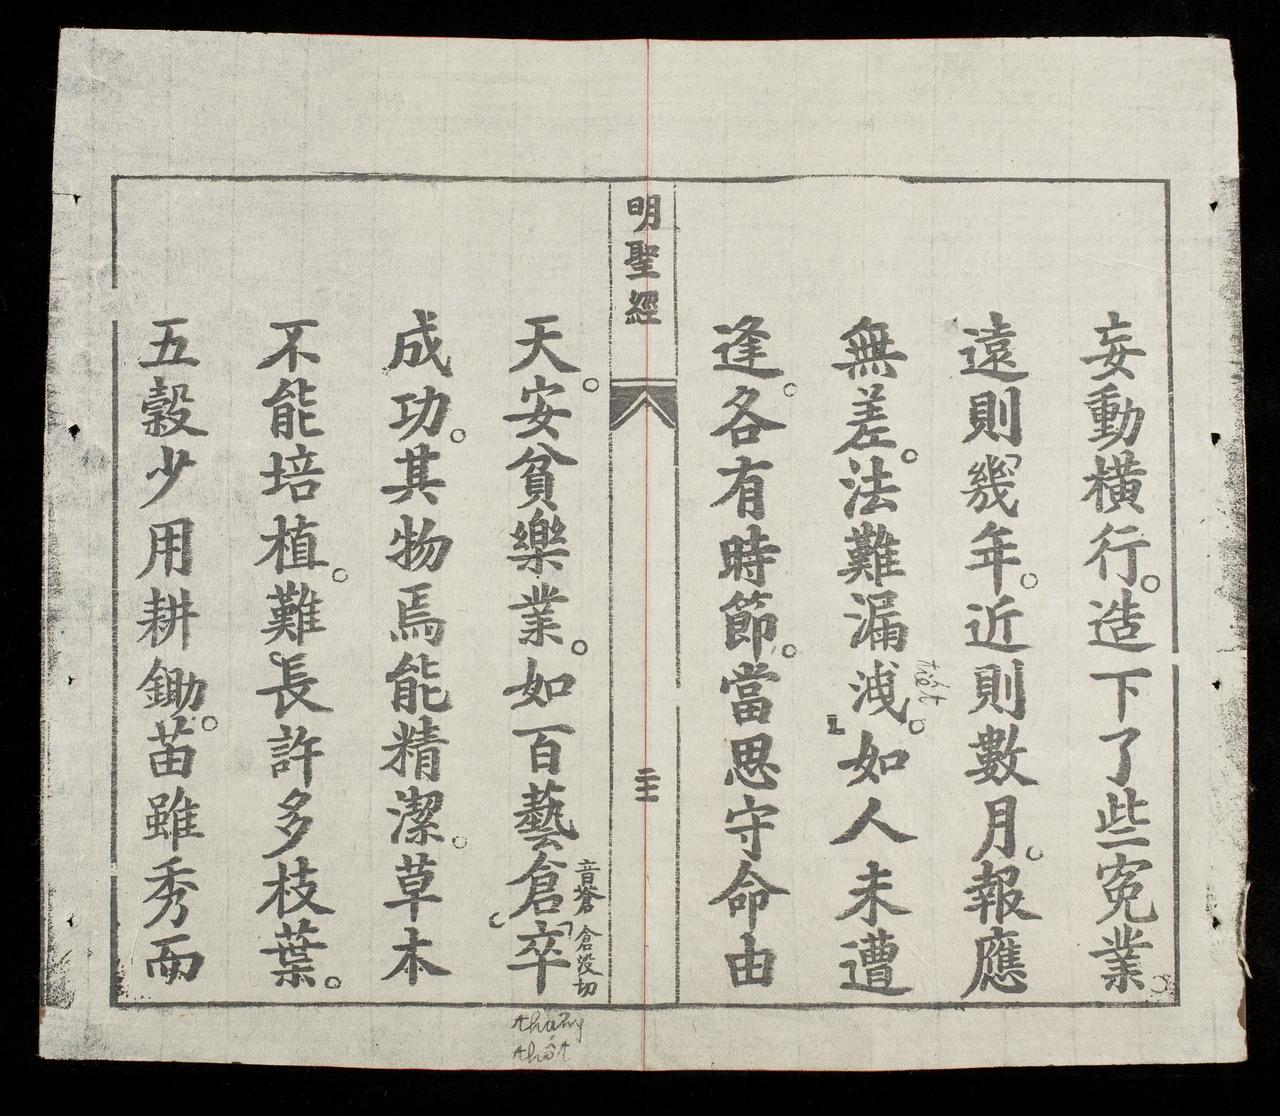 妄動橫行。造下了些寃業。
遠則幾年。近則數月。報應
無差。法難漏洩。如人未遭
tiết
逢。各有時節。當思守命由
明聖經
二十一
天。安貧樂業。如百藝倉卒
音蒼 倉没切
thảng
thốt
成功。其物焉能精潔。草木
不能培植。難長許多枝葉。
五穀少用耕鋤。苗雖秀而